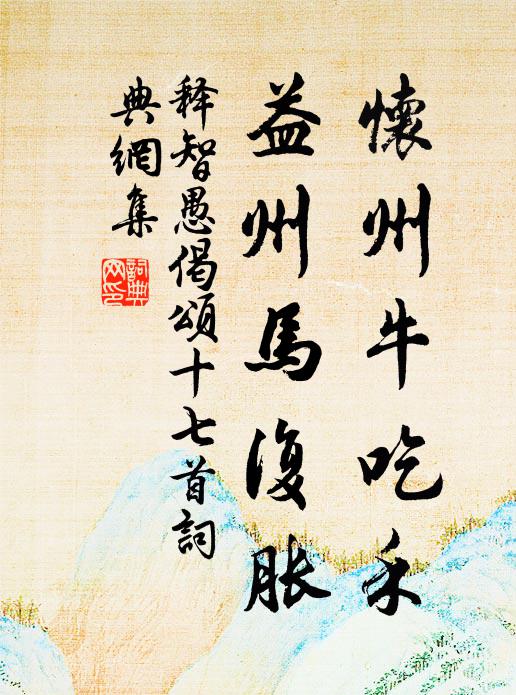 懷州牛吃禾
益州馬復脹
释智愚偈頌十七首詞
典網集
詞典
网印